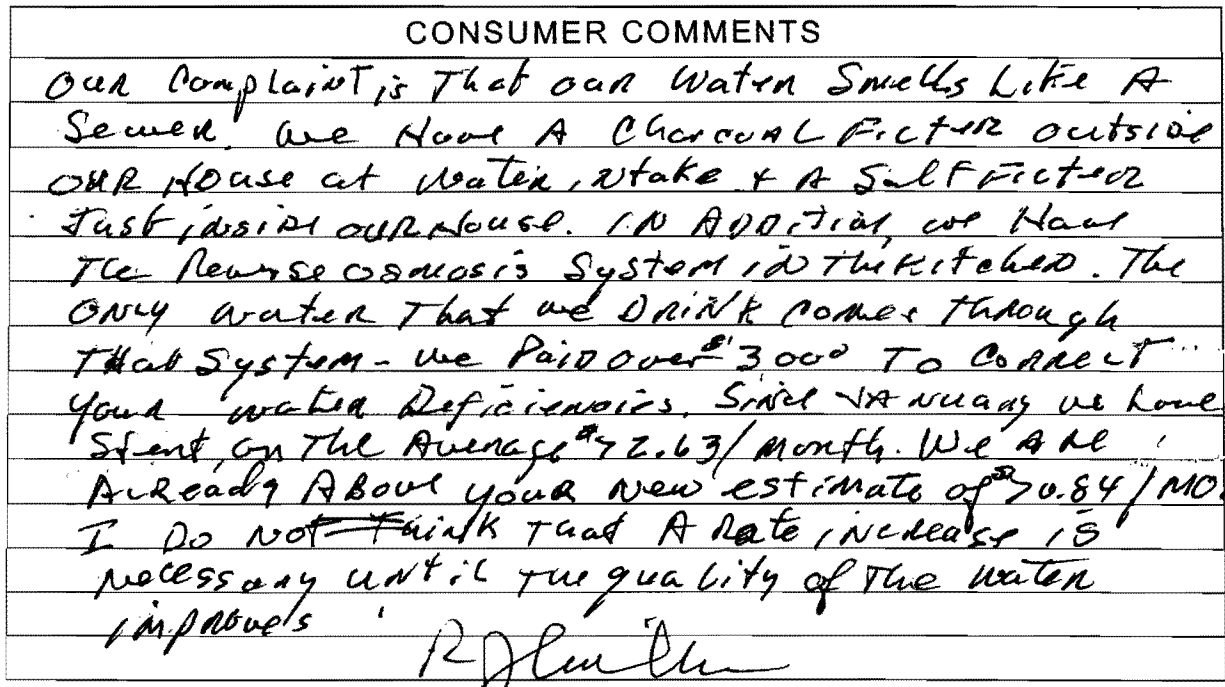 CONSUMER COMMENTS
Our Complaint is That our Water Smells Like A
Sewer. We Have A Charcoal Filter outside
OUR House at Water intake + A Salt Filter
Just inside our House. IN Addition, we Have
The Reverse osmosis System in The Kitchen. The
ONly water That we DRINK comes through
That System - We Paid over $3000 To Correct
your water Deficiencies. Since January we have
Spent, on The Average $72.63/month. We Are
Already Above your New estimate of $70.84/MO.
I Do Not Think That A Rate increase is
necessary until The quality of The water
improves